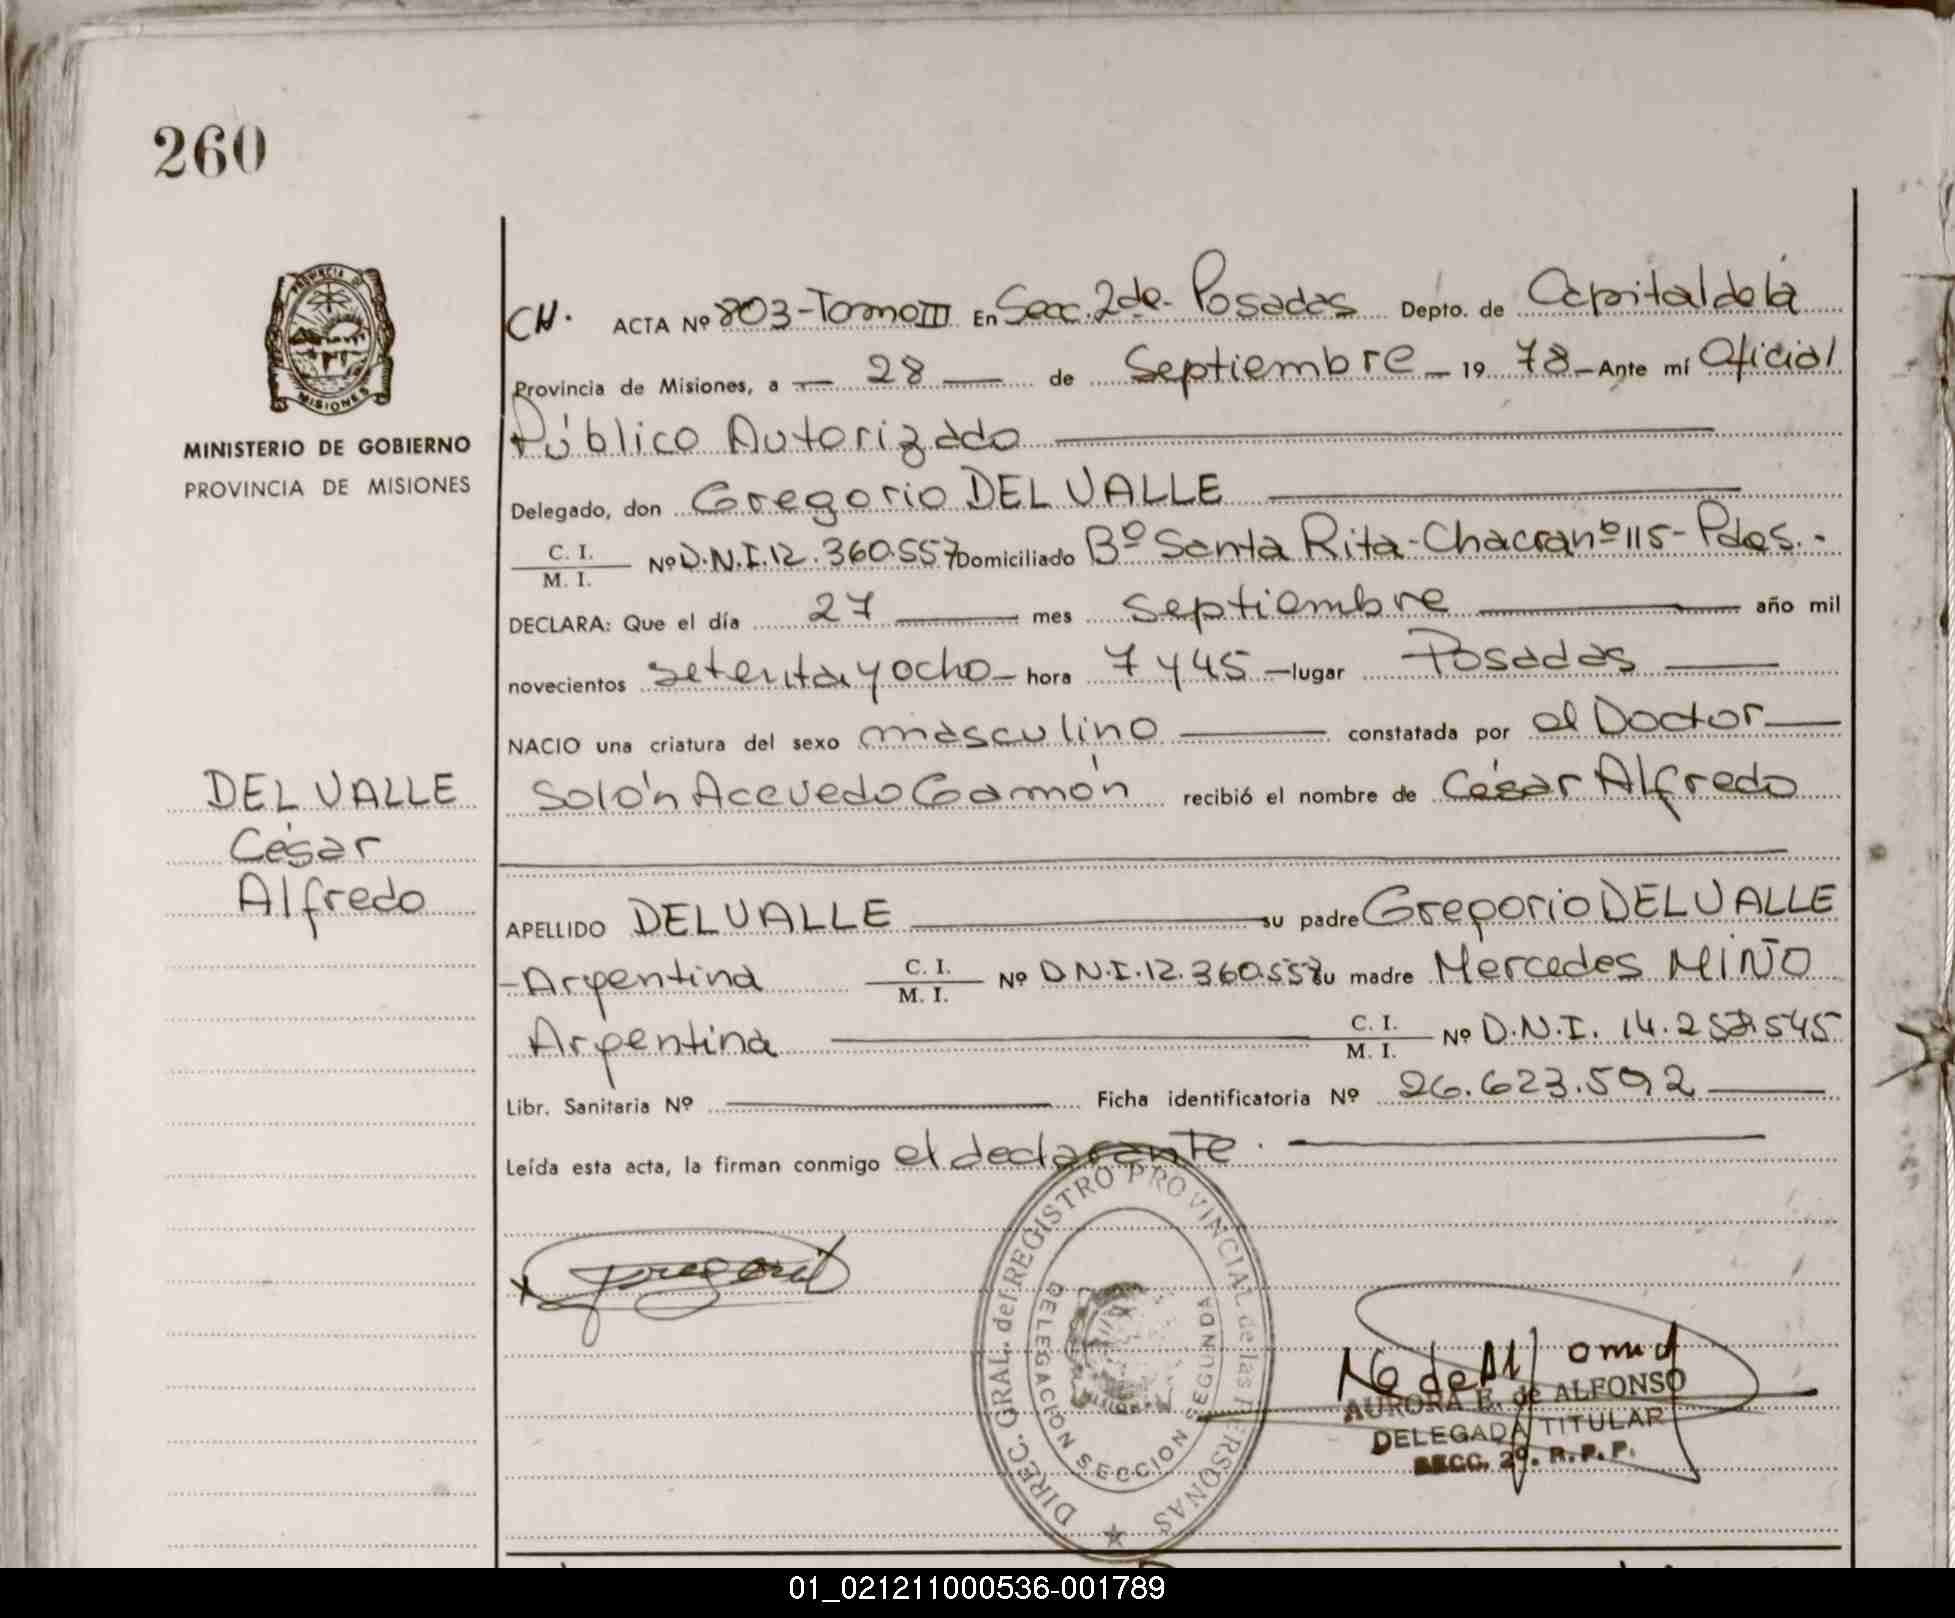 260
PROVINCIA DE
MISIONES
MINISTERIO DE GOBIERNO
PROVINCIA DE MISIONES
DEL VALLE
César
Alfredo
CH. ACTA Nº 803-Tomo III En Secc. 2da. Posadas Depto. de Capital de la
Provincia de Misiones, a — 28 — de Septiembre — 19 78 — Ante mí Oficial
Público Autorizado
Delegado, don Gregorio DEL VALLE
C. I.
M. I. Nº D.N.I. 12.360.557 Domiciliado Bº Santa Rita-Chacra nº 115-Pdas.-
DECLARA: Que el día 27 — mes Septiembre — año mil
novecientos setenta y ocho — hora 7 y 45 — lugar Posadas —
NACIO una criatura del sexo masculino — constatada por el Doctor —
Solón Acevedo Gamón recibió el nombre de César Alfredo
APELLIDO DEL VALLE — su padre Gregorio DEL VALLE
-Argentina C. I.
M. I. Nº D.N.I. 12.360.557 su madre Mercedes MIÑO
Argentina — C. I.
M. I. Nº D.N.I. 14.258.545
Libr. Sanitaria Nº — Ficha identificatoria Nº 26.623.592 —
Leída esta acta, la firman conmigo el declarante. —
DIREC. GRAL. del REGISTRO PROVINCIAL de las PERSONAS
DELEGACION SECCION SEGUNDA
AURORA E. de ALFONSO
DELEGADA TITULAR
SECC. 2º. R.P.P.
01_021211000536-001789